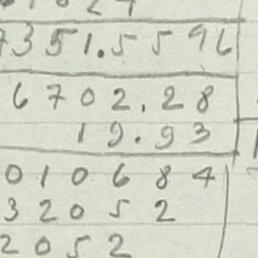 7351.5596
6702.28
19.93
010684
32052
2052